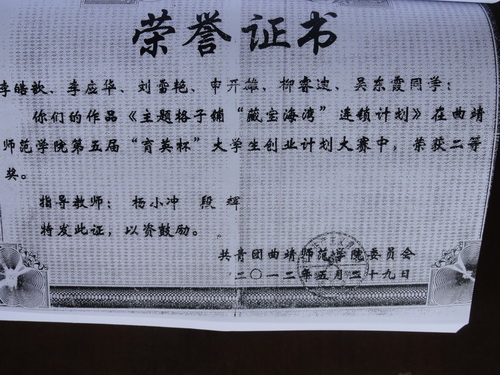 荣誉证书
李皓歆、李应华、刘雪艳、申开雄、柳睿逵、吴东霞同学：
你们的作品《主题格子铺“藏宝海湾”连锁计划》在曲靖
师范学院第五届“育英杯”大学生创业计划大赛中，荣获二等
奖。
指导教师：杨小冲 段辉
特发此证，以资鼓励。
共青团曲靖师范学院委员会
二〇一二年五月二十九日